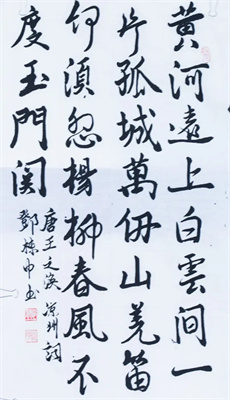 黄河遠上白雲間一
片孤城萬仞山羌笛
何須怨楊柳春風不
度玉門関
唐王之渙凉州詞
鄧中书